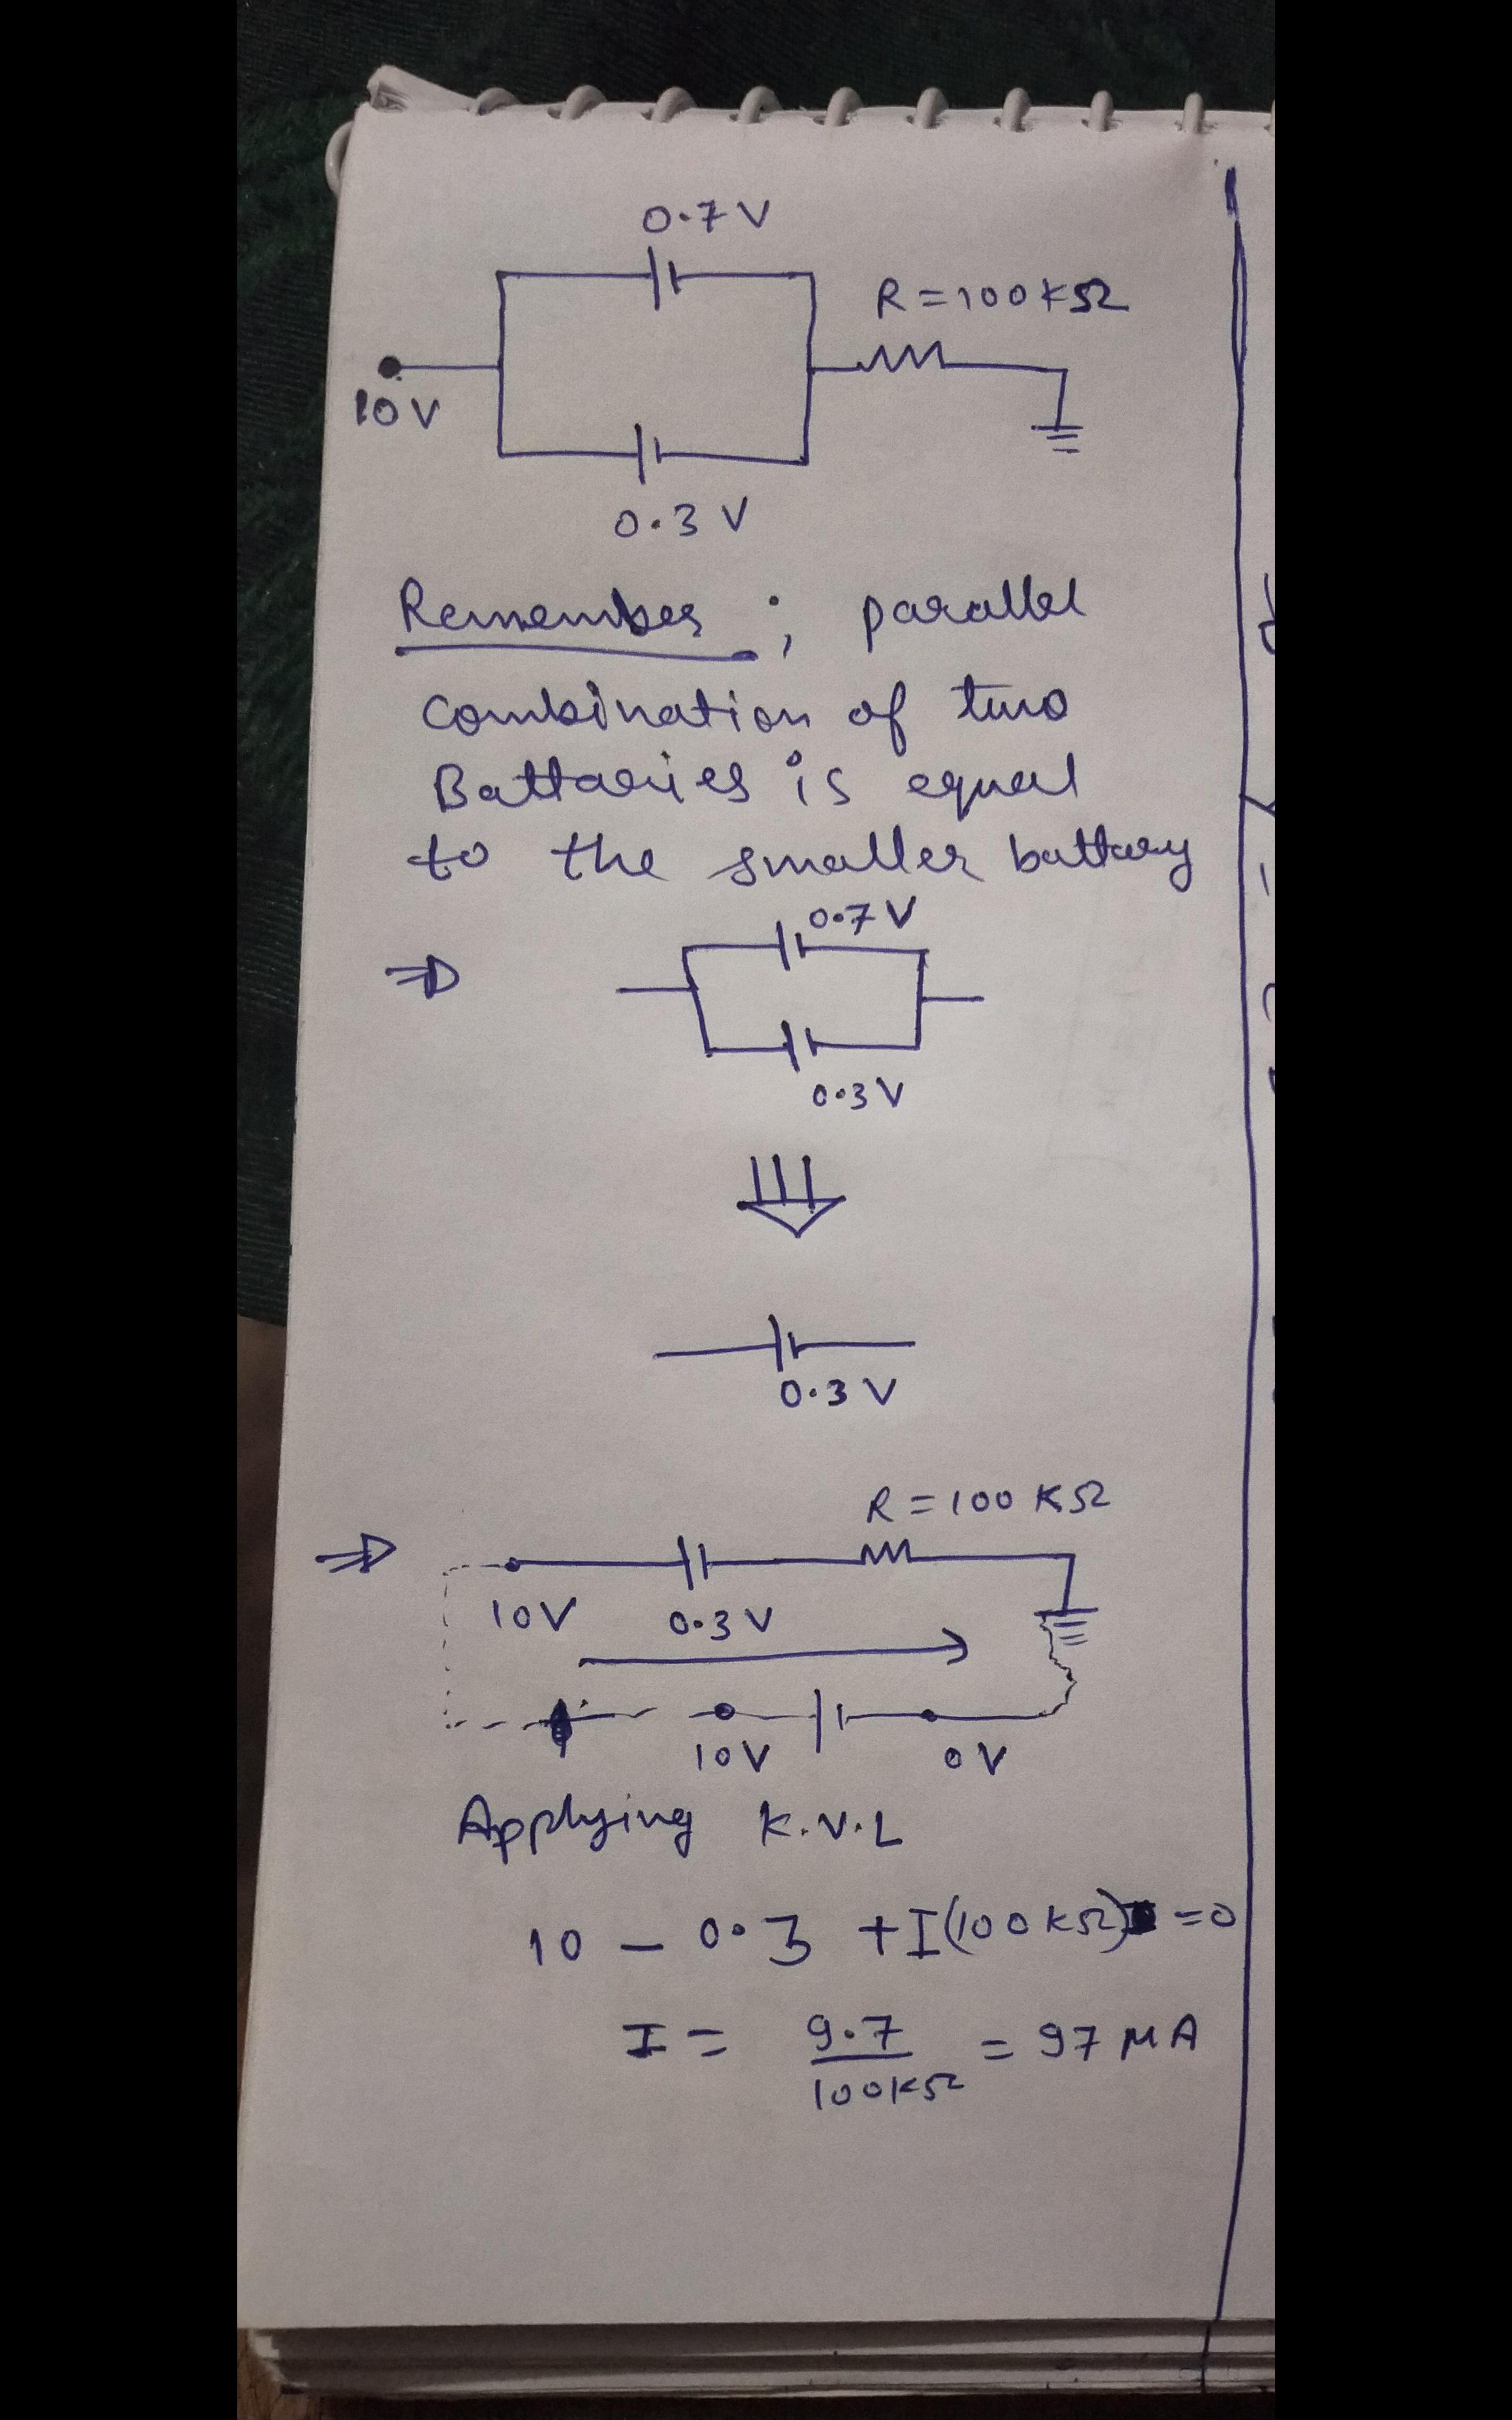 0.7 V
R = 100 KΩ
10 V
0.3 V
Remember ; parallel
combination of two
Battaries is equal
to the smaller battary
⇒ 0.7 V
0.3 V
0.3 V
R = 100 KΩ
⇒ 10V 0.3 V
10V 0V
Applying K.V.L
10 - 0.3 + I(100 KΩ) = 0
I = 9.7 / 100KΩ = 97 μA